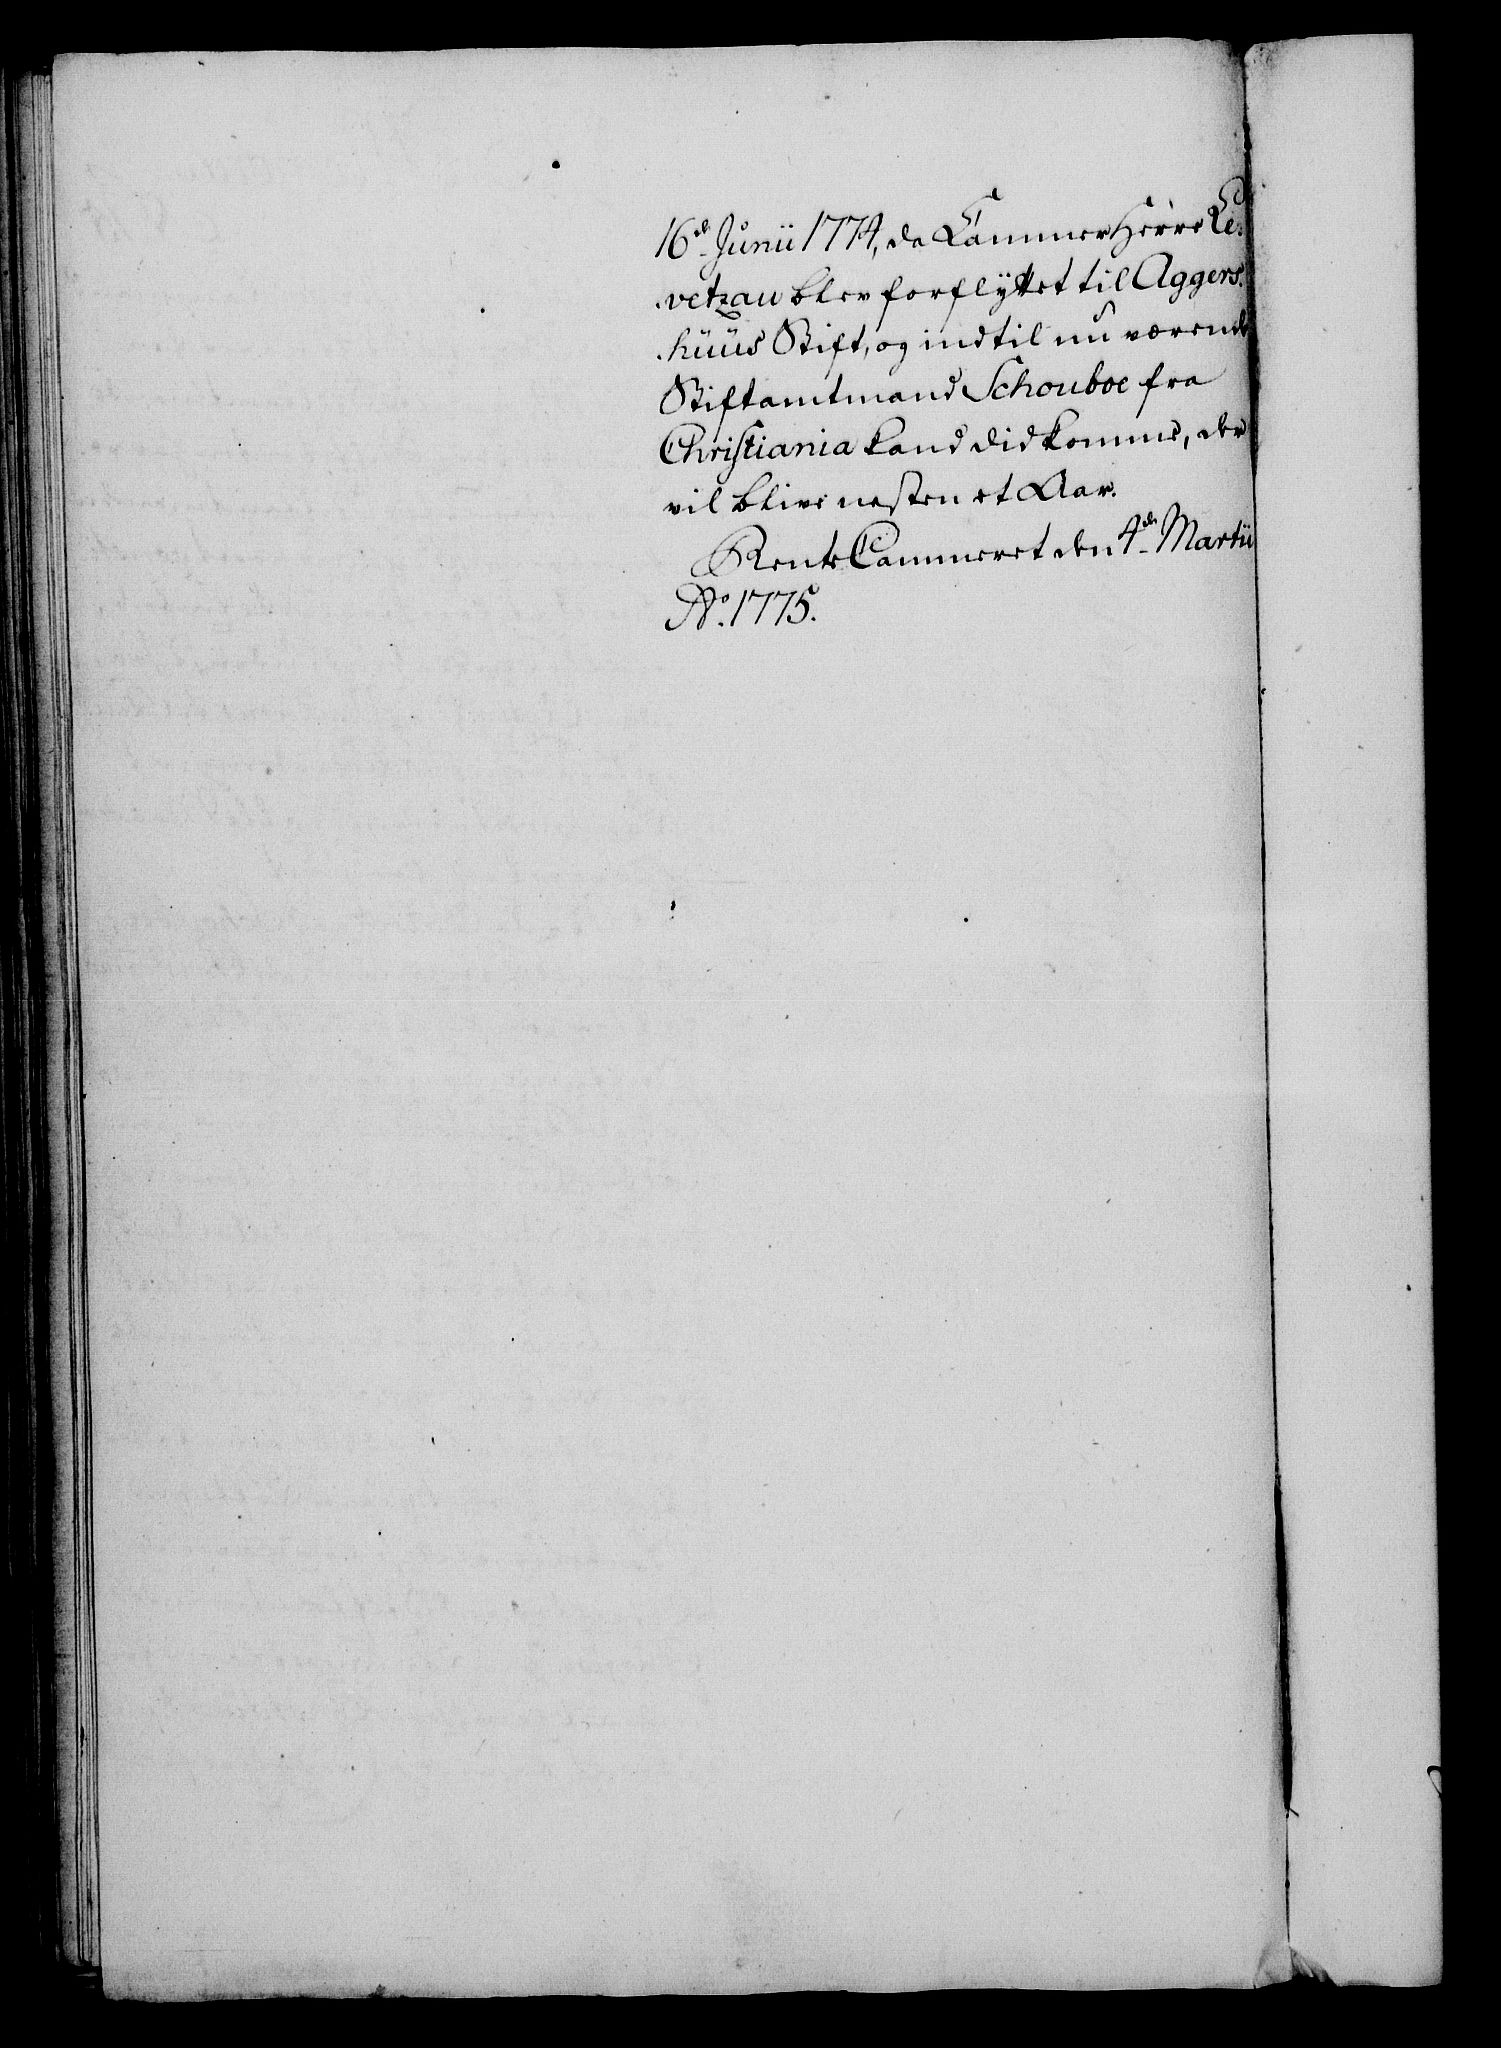 16de Junii 1774, da Cammer Herre Le-
vetzau blev forflyttet til Aggers-
huus Stift, og indtil nu værende
Stiftamtmand Schouboe fra
Christiania kand did komme, der
vil blive nesten et Aar.
Rente Cammeret den 4de Martii
Ao. 1775.